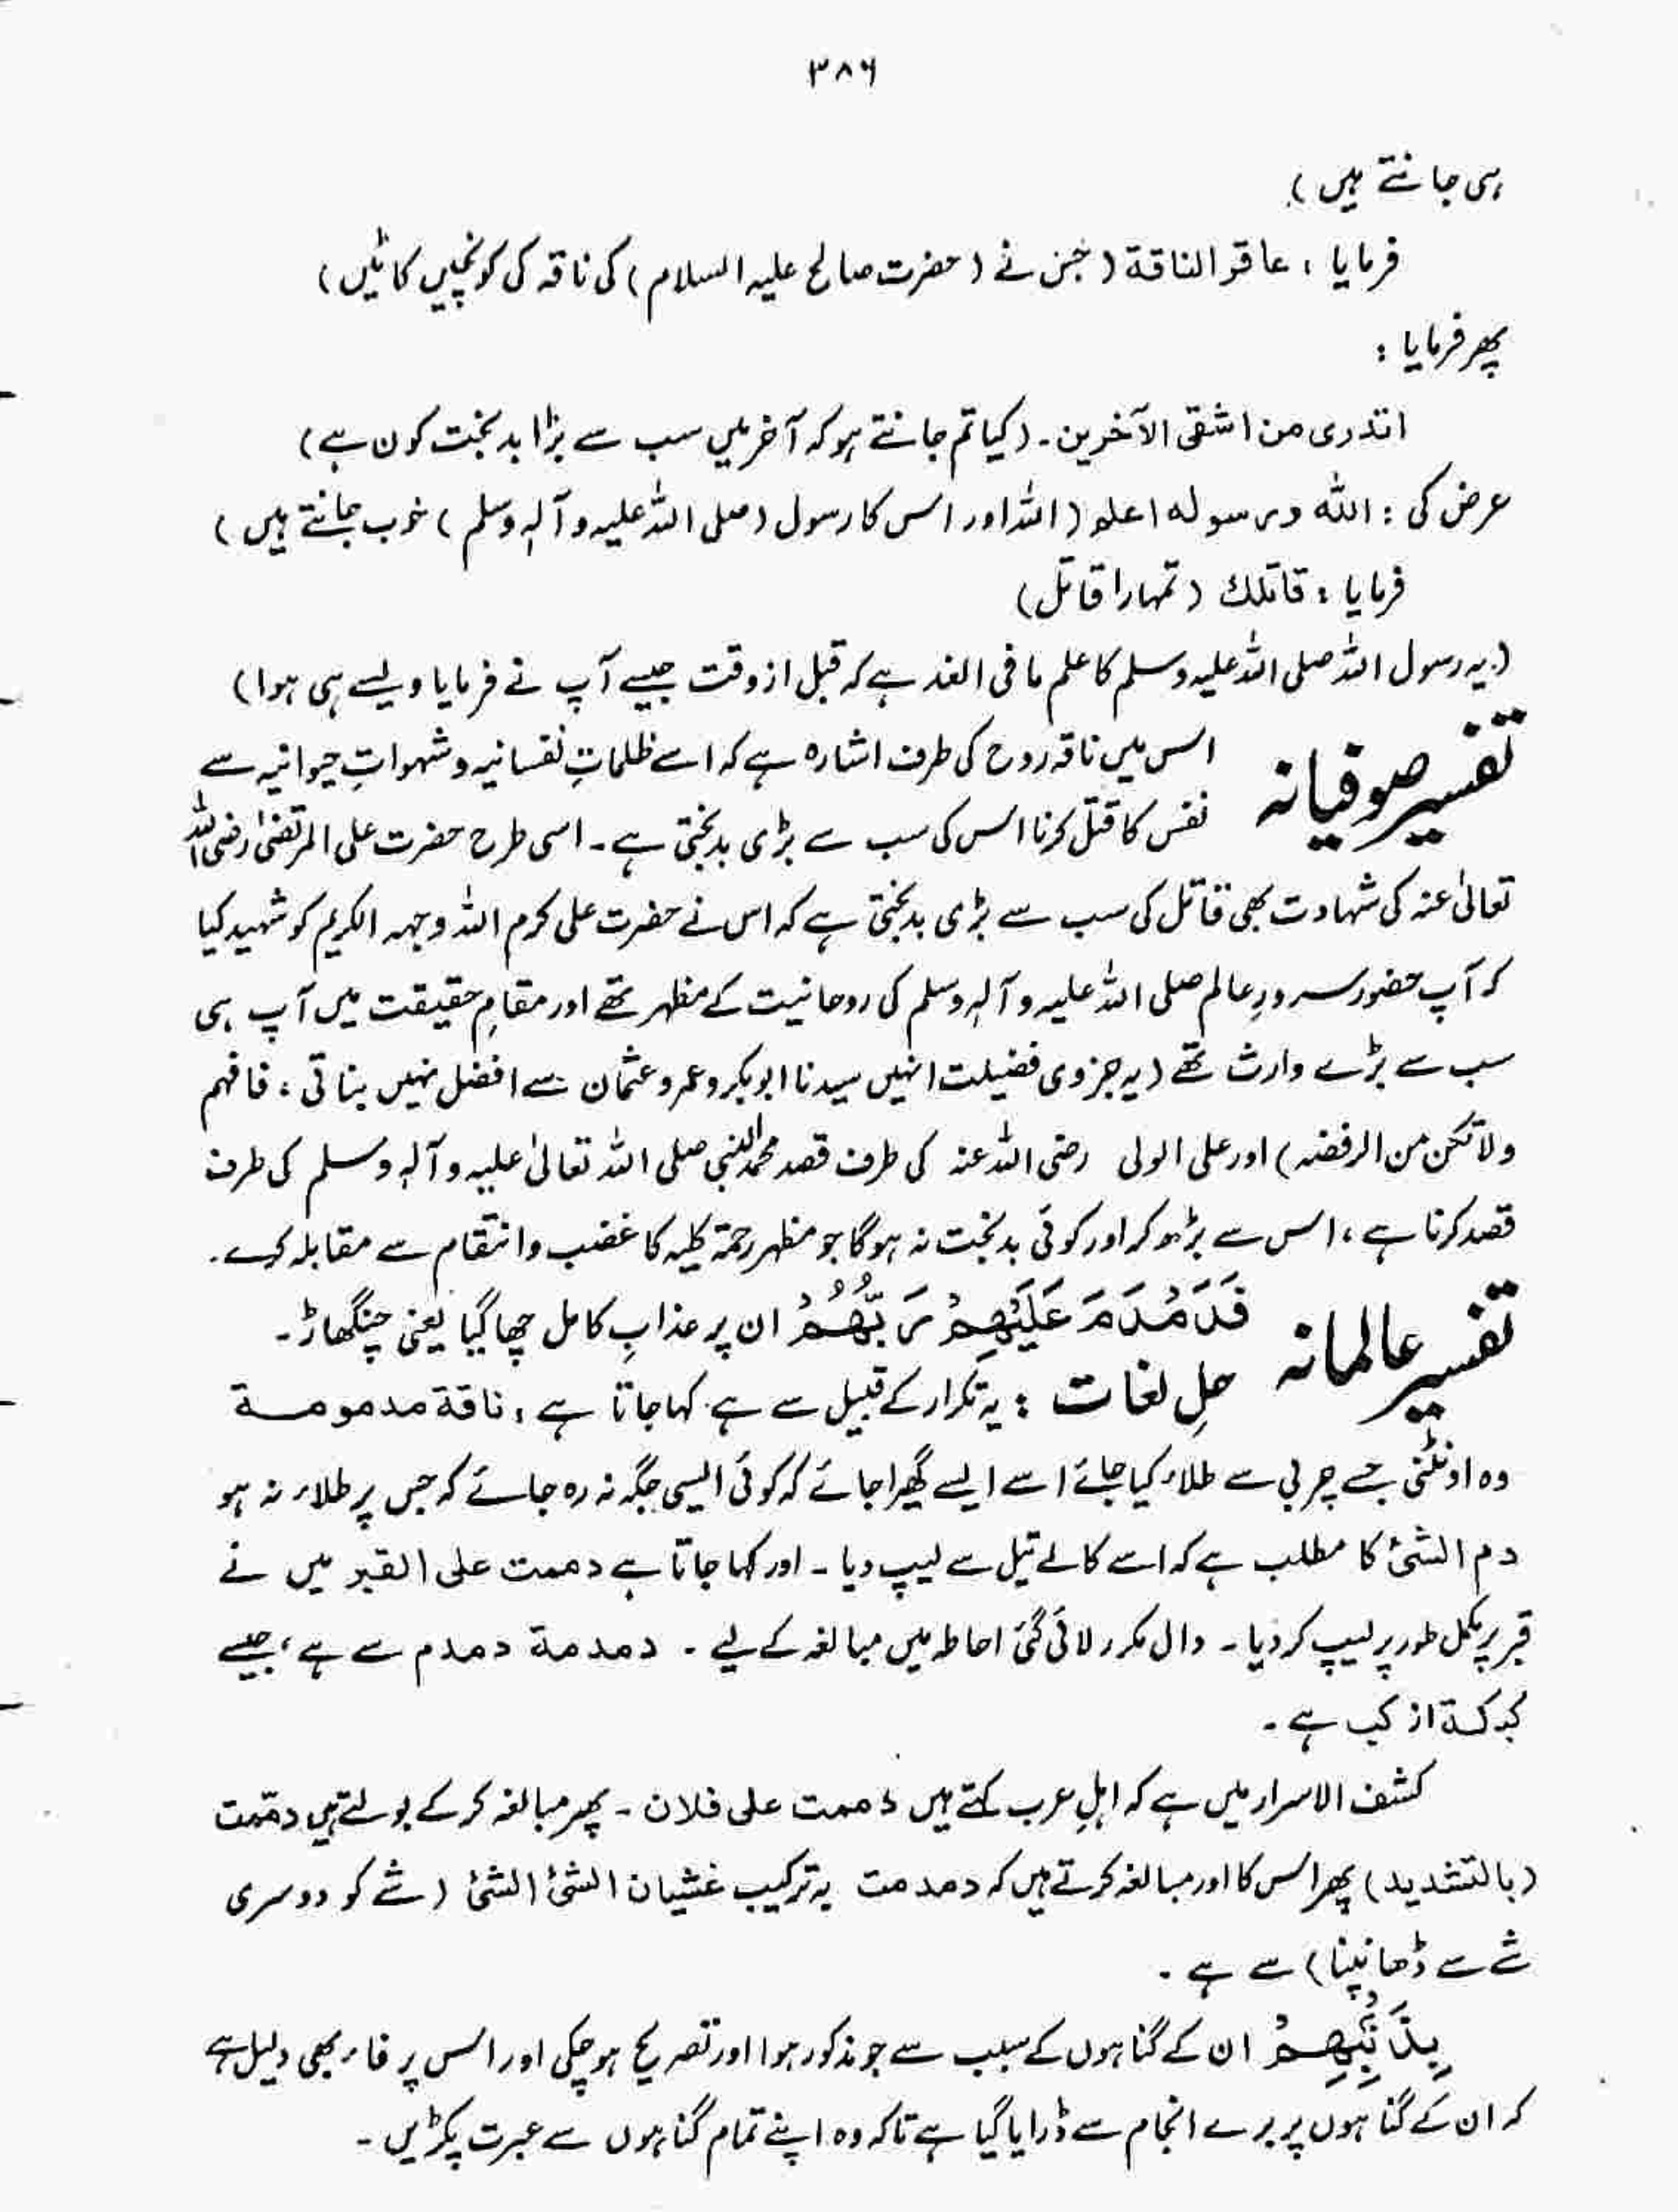 ۳۸۶
ہی جانتے ہیں)
فرمایا : عاقر الناقة (جس نے (حضرت صالح علیہ السلام) کی ناقہ کی کونچیں کاٹیں)
پھر فرمایا :
اتدری من اشقی الآخرین۔ (کیا تم جانتے ہو کہ آخر میں سب سے بڑا بدبخت کون ہے)
عرض کی : الله ورسوله اعلم (اللہ اور اس کا رسول (صلی اللہ علیہ وآلہٖ وسلم) خوب جانتے ہیں)
فرمایا : قاتلك (تمہارا قاتل)
(یہ رسول اللہ صلی اللہ علیہ وسلم کا علم ما فی الغد ہے کہ قبل از وقت جیسے آپ نے فرمایا ویسے ہی ہوا)
تفسیر صوفیانہ اس میں ناقہ روح کی طرف اشارہ ہے کہ اسے ظلماتِ نفسانیہ و شہواتِ حیوانیہ سے
نفس کا قتل کرنا اس کی سب سے بڑی بدبختی ہے۔ اسی طرح حضرت علی المرتضیٰ رضی اللہ
تعالیٰ عنہ کی شہادت بھی قاتل کی سب سے بڑی بدبختی ہے کہ اس نے حضرت علی کرم اللہ وجہہ الکریم کو شہید کیا
کہ آپ حضور سرورِ عالم صلی اللہ علیہ وآلہٖ وسلم کی روحانیت کے مظہر تھے اور مقامِ حقیقت میں آپ ہی
سب سے بڑے وارث تھے (یہ جزوی فضیلت انہیں سیدنا ابوبکر و عمر و عثمان سے افضل نہیں بناتی ، فافہم
ولا تکن من الرفضہ) اور علی الولی رضی اللہ عنہ کی طرف قصد محمد النبی صلی اللہ تعالیٰ علیہ وآلہٖ وسلم کی طرف
قصد کرنا ہے ، اس سے بڑھ کر اور کوئی بدبخت نہ ہوگا جو مظہر رحمۃ کلیہ کا غضب و انتقام سے مقابلہ کرے۔
تفسیر عالمانہ فَدَمْدَمَ عَلَيْهِمْ رَبُّهُمْ ان پر عذابِ کامل چھا گیا یعنی چنگھاڑ۔
حلِ لغات : یہ تکرار کے قبیل سے ہے۔ کہا جاتا ہے ، ناقة مدمومة
وہ اونٹنی جسے چربی سے طلاء کیا جائے اسے ایسے گھیرا جائے کہ کوئی ایسی جگہ نہ رہ جائے کہ جس پر طلاء نہ ہو
دم الشئ کا مطلب ہے کہ اسے کالے تیل سے لیپ دیا۔ اور کہا جاتا ہے دممت علی القبر میں نے
قبر پر مکمل طور پر لیپ کر دیا۔ دال مکرر لائی گئی احاطہ میں مبالغہ کے لیے۔ دمدمة دمدم سے ہے ، جیسے
کبکبة از کب ہے۔
کشف الاسرار میں ہے کہ اہلِ عرب کہتے ہیں دممت علی فلان۔ پھر مبالغہ کرکے بولتے ہیں دمّمت
(بالتشدید) پھر اس کا اور مبالغہ کرتے ہیں کہ دمدمت یہ ترکیب غشیان الشئ الشئ (شے کو دوسری
شے سے ڈھانپنا) سے ہے۔
بِذَنْبِهِمْ ان کے گناہوں کے سبب سے جو مذکور ہوا اور تصریح ہو چکی اور اس پر فاء بھی دلیل ہے
کہ ان کے گناہوں پر برے انجام سے ڈرایا گیا ہے تاکہ وہ اپنے تمام گناہوں سے عبرت پکڑیں۔